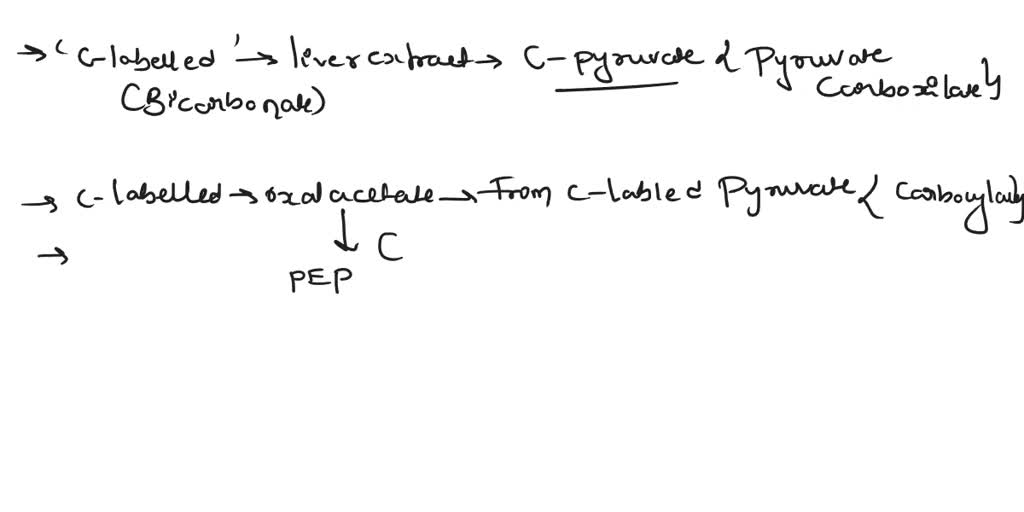 → ' C-labelled ' → liver extract → C-pyruvate { Pyruvate
(Bicarbonate)
Carboxilase}
→ C-labelled → oxalacetate → From C-labled Pyruvate {
→
↓ C
PEP